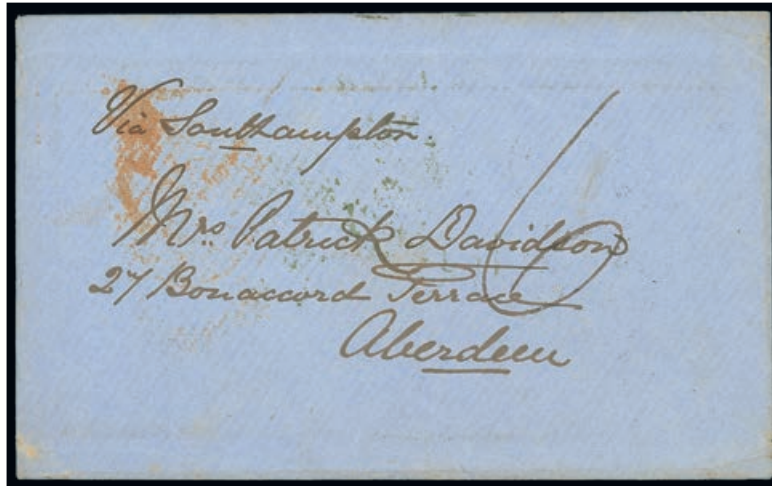 Via Southampton.
Mrs Patrick Davidson
27 Bonaccord Terrace
Aberdeen
6